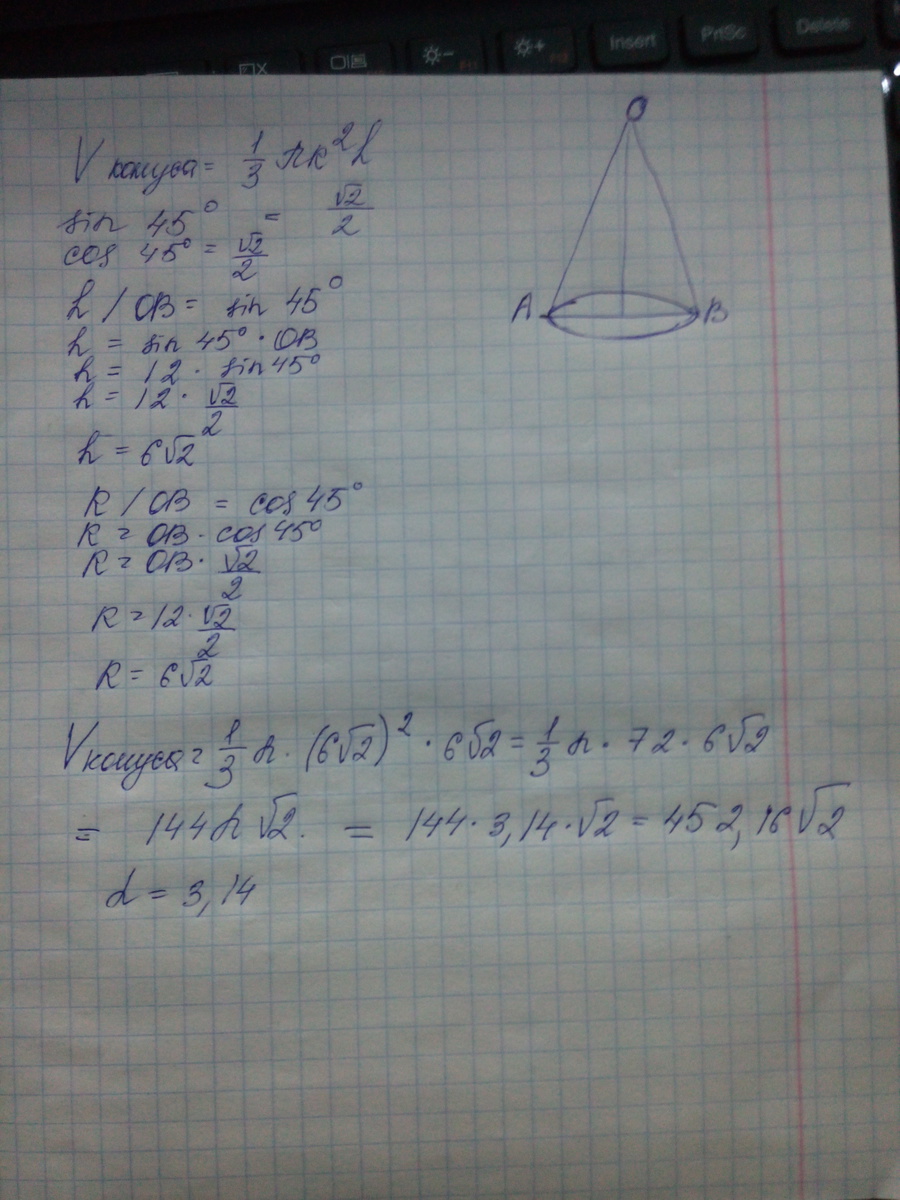 Insert PrtSc Delete
V конуса = 1/3 πR²h
sin 45° = √2/2
cos 45° = √2/2
h / OB = sin 45°
h = sin 45° · OB
h = 12 · sin 45°
h = 12 · √2/2
h = 6√2
R / OB = cos 45°
R = OB · cos 45°
R = OB · √2/2
R = 12 · √2/2
R = 6√2
V конуса = 1/3 π · (6√2)² · 6√2 = 1/3 π · 72 · 6√2
= 144π√2. = 144 · 3,14 · √2 = 452,16√2
d = 3,14
O
A B